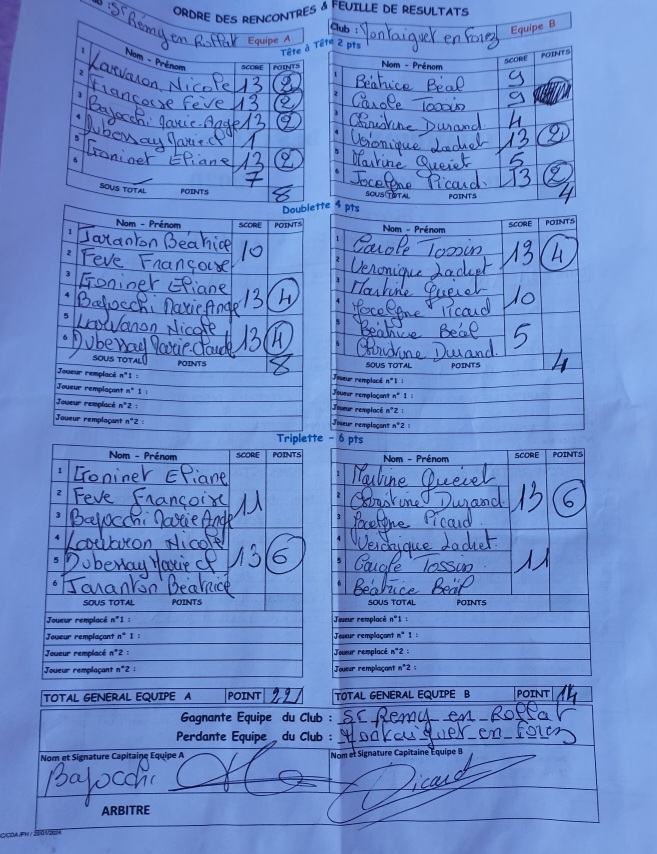 ORDRE DES RENCONTRES & FEUILLE DE RESULTATS
St Remy en Rollat Equipe A
Club : Montaiguet en Forez Equipe B
Tête à Tête 2 pts
Nom - Prénom SCORE POINTS
1 Larvaron Nicole 13 2
2 Françoise Feve 13 2
3 Bajocchi Marie-Ange 13 2
4 Dubessay Marie Cl 1
5 Goninet Eliane 13 2
6 7
SOUS TOTAL POINTS 8
Nom - Prénom SCORE POINTS
1 Béatrice Béal 9
2 Carole Tossin 9
3 Christine Durand 4
4 Véronique Lachet 13 2
5 Martine Queiet 5
6 Jocelyne Picard. 13 2
SOUS TOTAL POINTS 4
Doublette 4 pts
Nom - Prénom SCORE POINTS
1 Taranton Béatrice 10
2 Feve Françoise
3 Goninet Eliane 13 4
4 Bajocchi Marie Ange
5 Larvaron Nicole 13 4
6 Dubessay Marie-Claude
SOUS TOTAL POINTS 8
Joueur remplacé n°1 :
Joueur remplaçant n° 1 :
Joueur remplacé n°2 :
Joueur remplaçant n°2 :
Nom - Prénom SCORE POINTS
1 Carole Tossin 13 4
2 Veronique Lachet
3 Martine Queiet 10
4 Jocelyne Picard
5 Béatrice Béal 5
6 Christine Durand.
SOUS TOTAL POINTS 4
Joueur remplacé n°1 :
Joueur remplaçant n° 1 :
Joueur remplacé n°2 :
Joueur remplaçant n°2 :
Triplette - 6 pts
Nom - Prénom SCORE POINTS
1 Goninet Eliane
2 Feve Françoise 11
3 Bajocchi Marie Ange
4 Larvaron Nicole
5 Dubessay Marie Cl 13 6
6 Taranton Béatrice
SOUS TOTAL POINTS
Joueur remplacé n°1 :
Joueur remplaçant n° 1 :
Joueur remplacé n°2 :
Joueur remplaçant n°2 :
Nom - Prénom SCORE POINTS
1 Martine Queiet
2 Christine Durand 13 6
3 Jocelyne Picard.
4 Veronique Lachet.
5 Carole Tossin 11
6 Béatrice Béal
SOUS TOTAL POINTS
Joueur remplacé n°1 :
Joueur remplaçant n° 1 :
Joueur remplacé n°2 :
Joueur remplaçant n°2 :
TOTAL GENERAL EQUIPE A POINT 22
TOTAL GENERAL EQUIPE B POINT 14
Gagnante Equipe du Club : St Remy en Rollat
Perdante Equipe du Club : Montaiguet en Forez
Nom et Signature Capitaine Equipe A
Bajocchi
Nom et Signature Capitaine Equipe B
Picard
ARBITRE